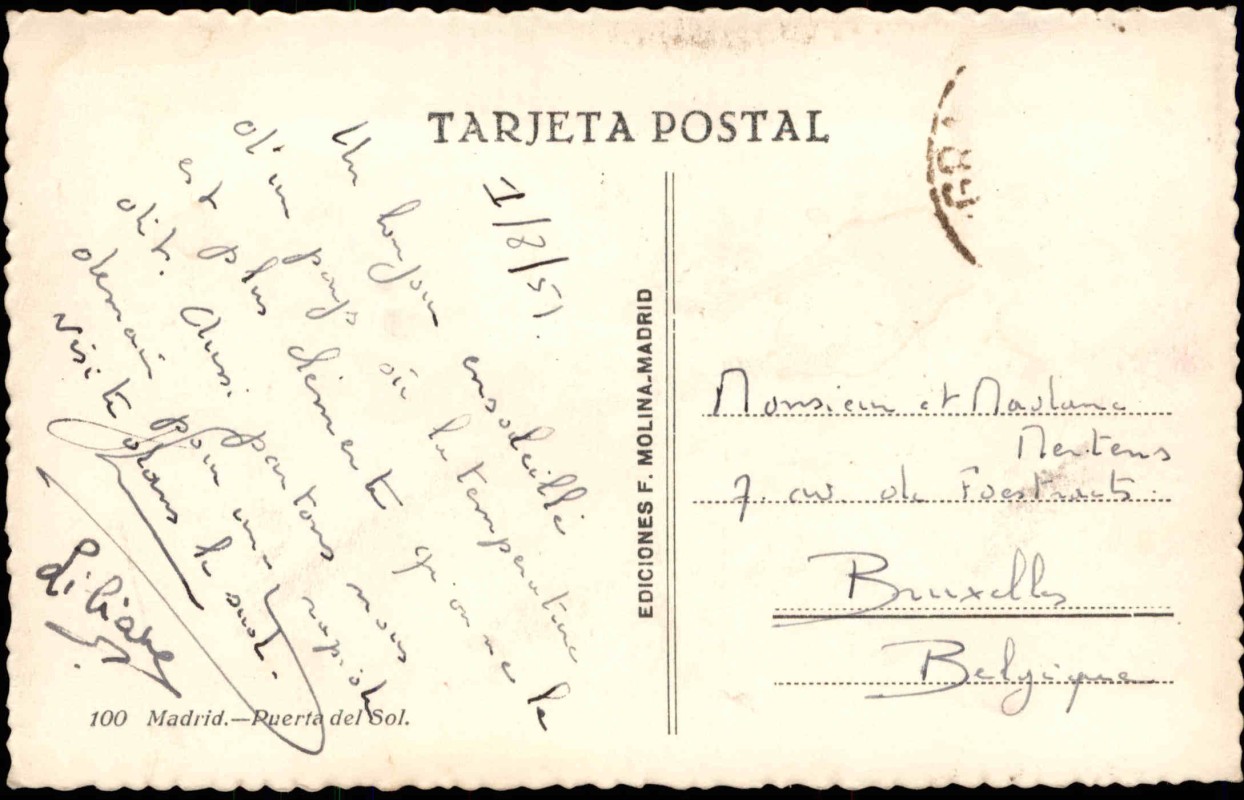 TARJETA POSTAL
1/8/51.
Un bonjour ensoleillé
d'un pays où la température
est plus clémente qu'on ne le
dit. Aussi partons nous
demain pour une rapide
visite dans le sud.
Liliane
100 Madrid.—Puerta del Sol.
EDICIONES F. MOLINA-MADRID
Monsieur et Madame
Mertens
7. av. de Foestraets.
Bruxelles
Belgique